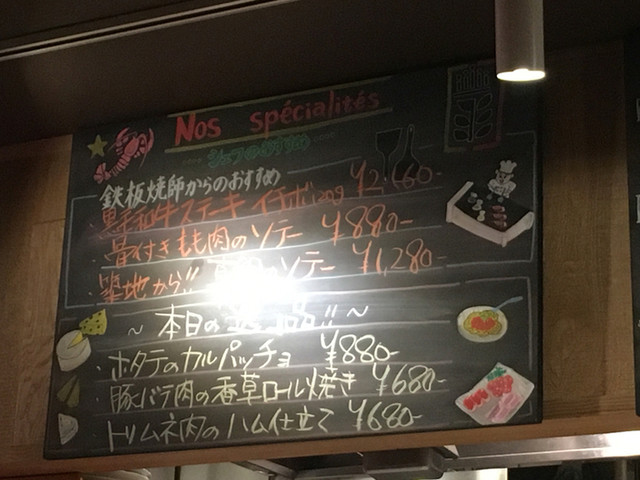 Nos spécialités
シェフのおすすめ
鉄板焼師からのおすすめ
黒毛和牛ステーキ イチボ 120g ¥2,160-
骨付きもも肉のソテー ¥880-
築地から!! のソテー ¥1,280-
~ 本日の 品!! ~
・ホタテのカルパッチョ ¥880-
・豚バラ肉の香草ロール焼き ¥680-
・トリムネ肉のハム仕立て ¥680-